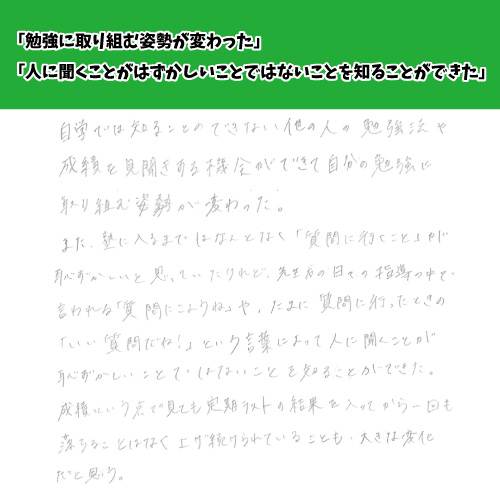 「勉強に取り組む姿勢が変わった」
「人に聞くことがはずかしいことではないことを知ることができた」
自学では知ることのできない他の人の勉強法や
成績を見聞きする機会ができて自分の勉強に
取り組む姿勢が変わった。
また、塾に入るまではなんとなく「質問に行くこと」が
恥ずかしいと思っていたけれど、先生方の日々の指導の中で、
言われる「質問にこようね」や、たまに質問に行ったときの
「いい質問だね!」という言葉によって人に聞くことが
恥ずかしいことではないことを知ることができた。
成績という点で見ても定期テストの結果を入ってから一回も
落ちることはなく上げ続けられていることも、大きな変化
だと思う。